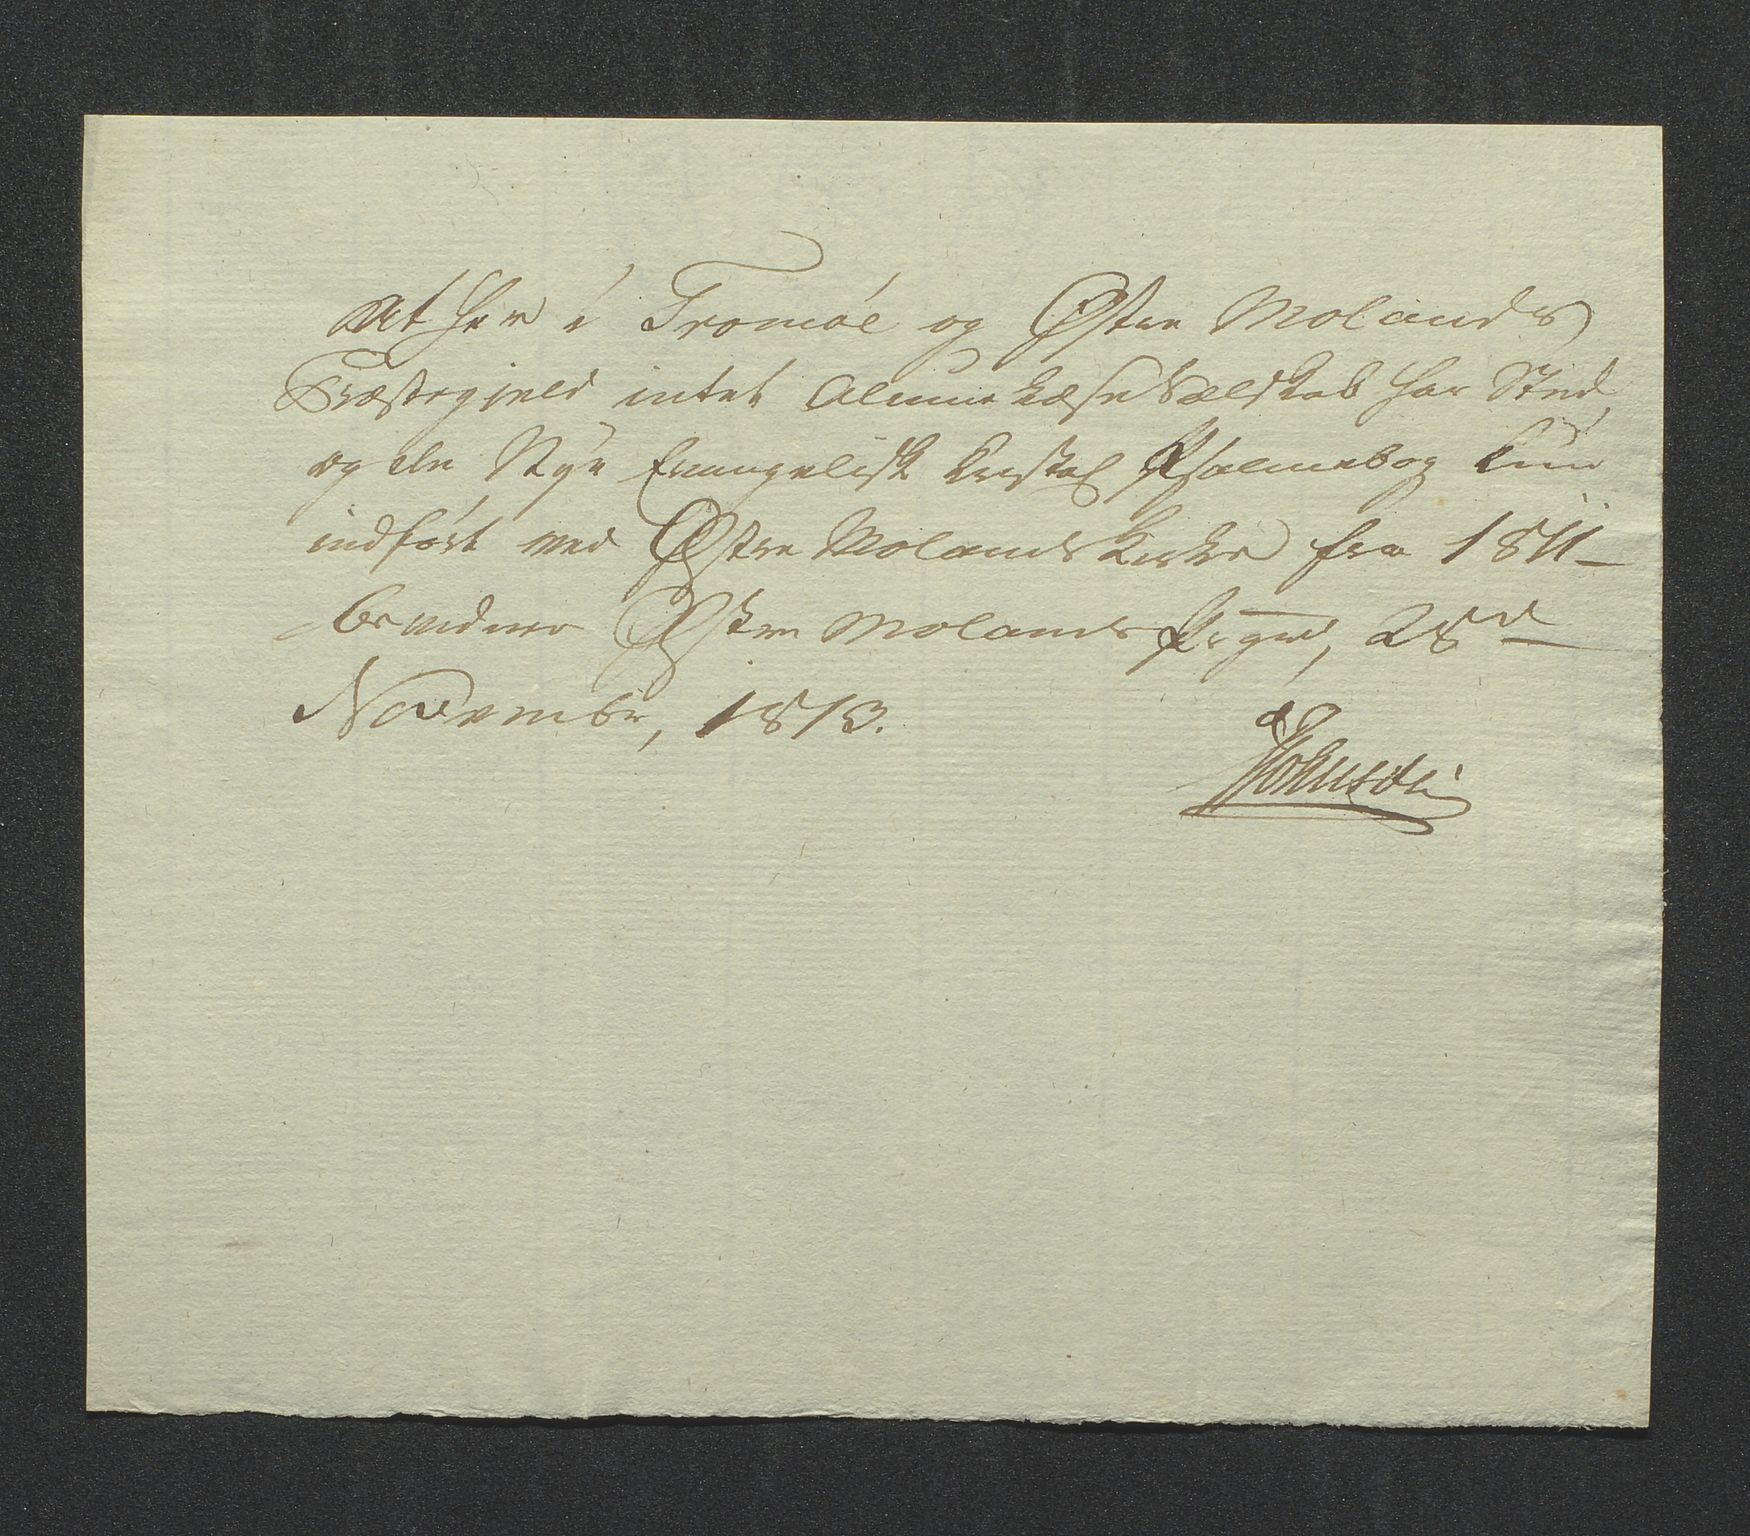 At her i Tromöe og Østre Molands
Præstegjeld intet Almue Læse Selskab har Sted,
og den Nye Evangelisk Christel Psalmebog kun
indført ved Østre Molands Kirke fra 1811 –
bevidner Østre Molands Prgrd, 28d
November, 1813.